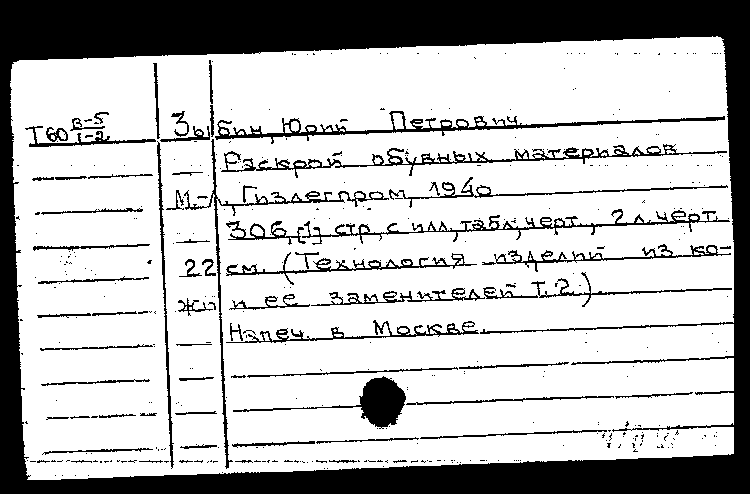 Т60 В-5/1-2 Зыбин, Юрий Петрович
Раскрой обувных материалов
М.-Л., Гизлегпром, 1940
306, [1] стр, с илл, табл, черт., 2 л. черт.
22 см. (Технология изделий из ко-
жи и ее заменителей Т. 2.)
Напеч. в Москве.